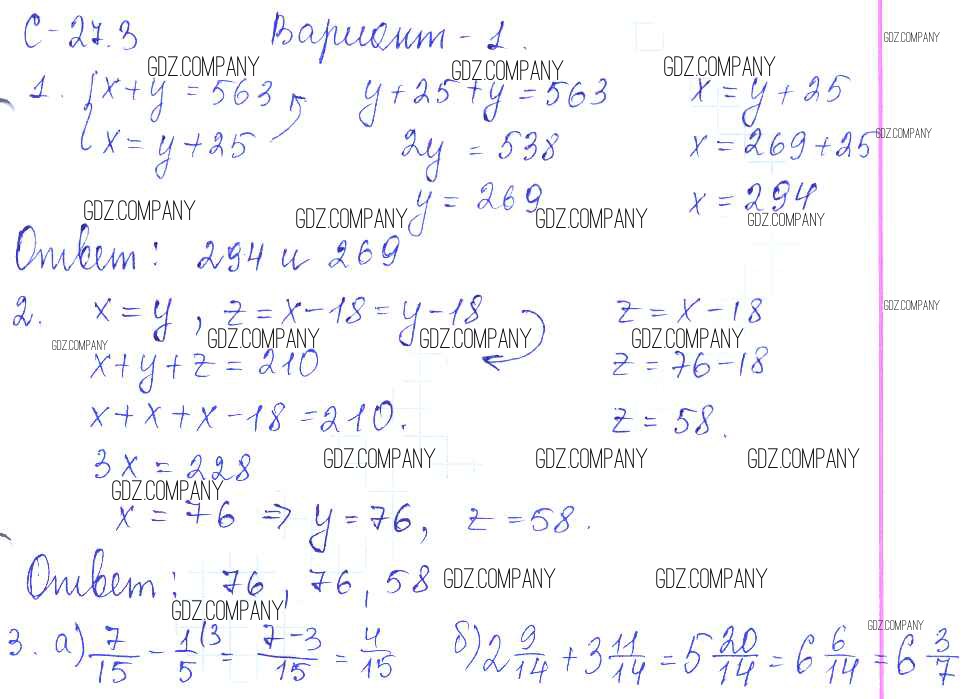 С-27.3 Вариант-1.
GDZ.COMPANY
GDZ.COMPANY GDZ.COMPANY GDZ.COMPANY
1. { x+y = 563 y+25+y = 563 x = y+25
GDZ.COMPANY
x = y+25 2y = 538 x = 269+25
y = 269 x = 294
GDZ.COMPANY GDZ.COMPANY GDZ.COMPANY GDZ.COMPANY
Ответ: 294 и 269
2. x = y, z = x-18 = y-18 z = x-18
GDZ.COMPANY
GDZ.COMPANY GDZ.COMPANY GDZ.COMPANY GDZ.COMPANY
x+y+z = 210 z = 76-18
x+x+x-18 = 210. z = 58.
GDZ.COMPANY GDZ.COMPANY GDZ.COMPANY
3x = 228
GDZ.COMPANY
x = 76 ⇒ y = 76, z = 58.
Ответ: 76, 76, 58
GDZ.COMPANY GDZ.COMPANY
GDZ.COMPANY
GDZ.COMPANY
3. а) 7/15 - 1/5 (3 = 7-3/15 = 4/15 б) 2 9/14 + 3 11/14 = 5 20/14 = 6 6/14 = 6 3/7